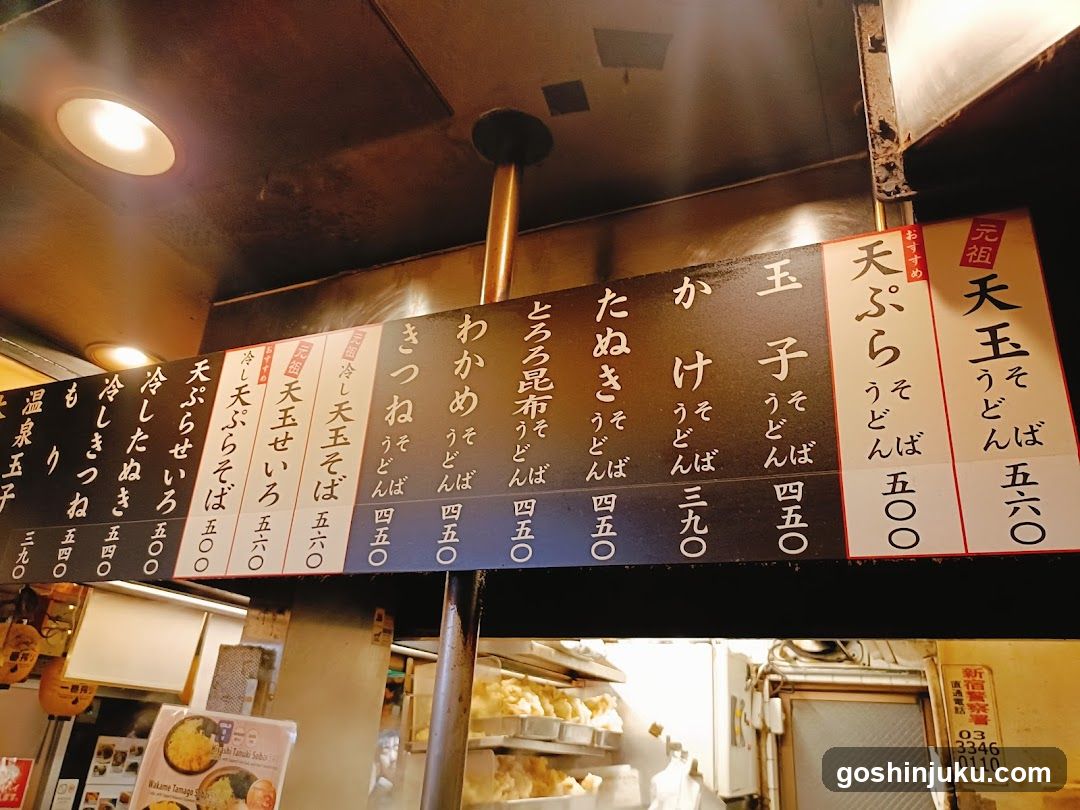 元祖 天玉 そば うどん 五六〇
おすすめ 天ぷら そば うどん 五〇〇
玉子 そば うどん 四五〇
かけ そば うどん 三九〇
たぬき そば うどん 四五〇
とろろ昆布 そば うどん 四五〇
わかめ そば うどん 四五〇
きつね そば うどん 四五〇
元祖 冷し天玉そば 五六〇
元祖 天玉せいろ 五六〇
おすすめ 冷し天ぷらそば 五〇〇
天ぷらせいろ 五〇〇
冷したぬき 五四〇
冷しきつね 五四〇
もり 三九〇
温泉玉子
Hiyashi Tanuki Soba
Wakame Tamago Soba
新宿警察署
直通電話
03
3346
0110
goshinjuku.com